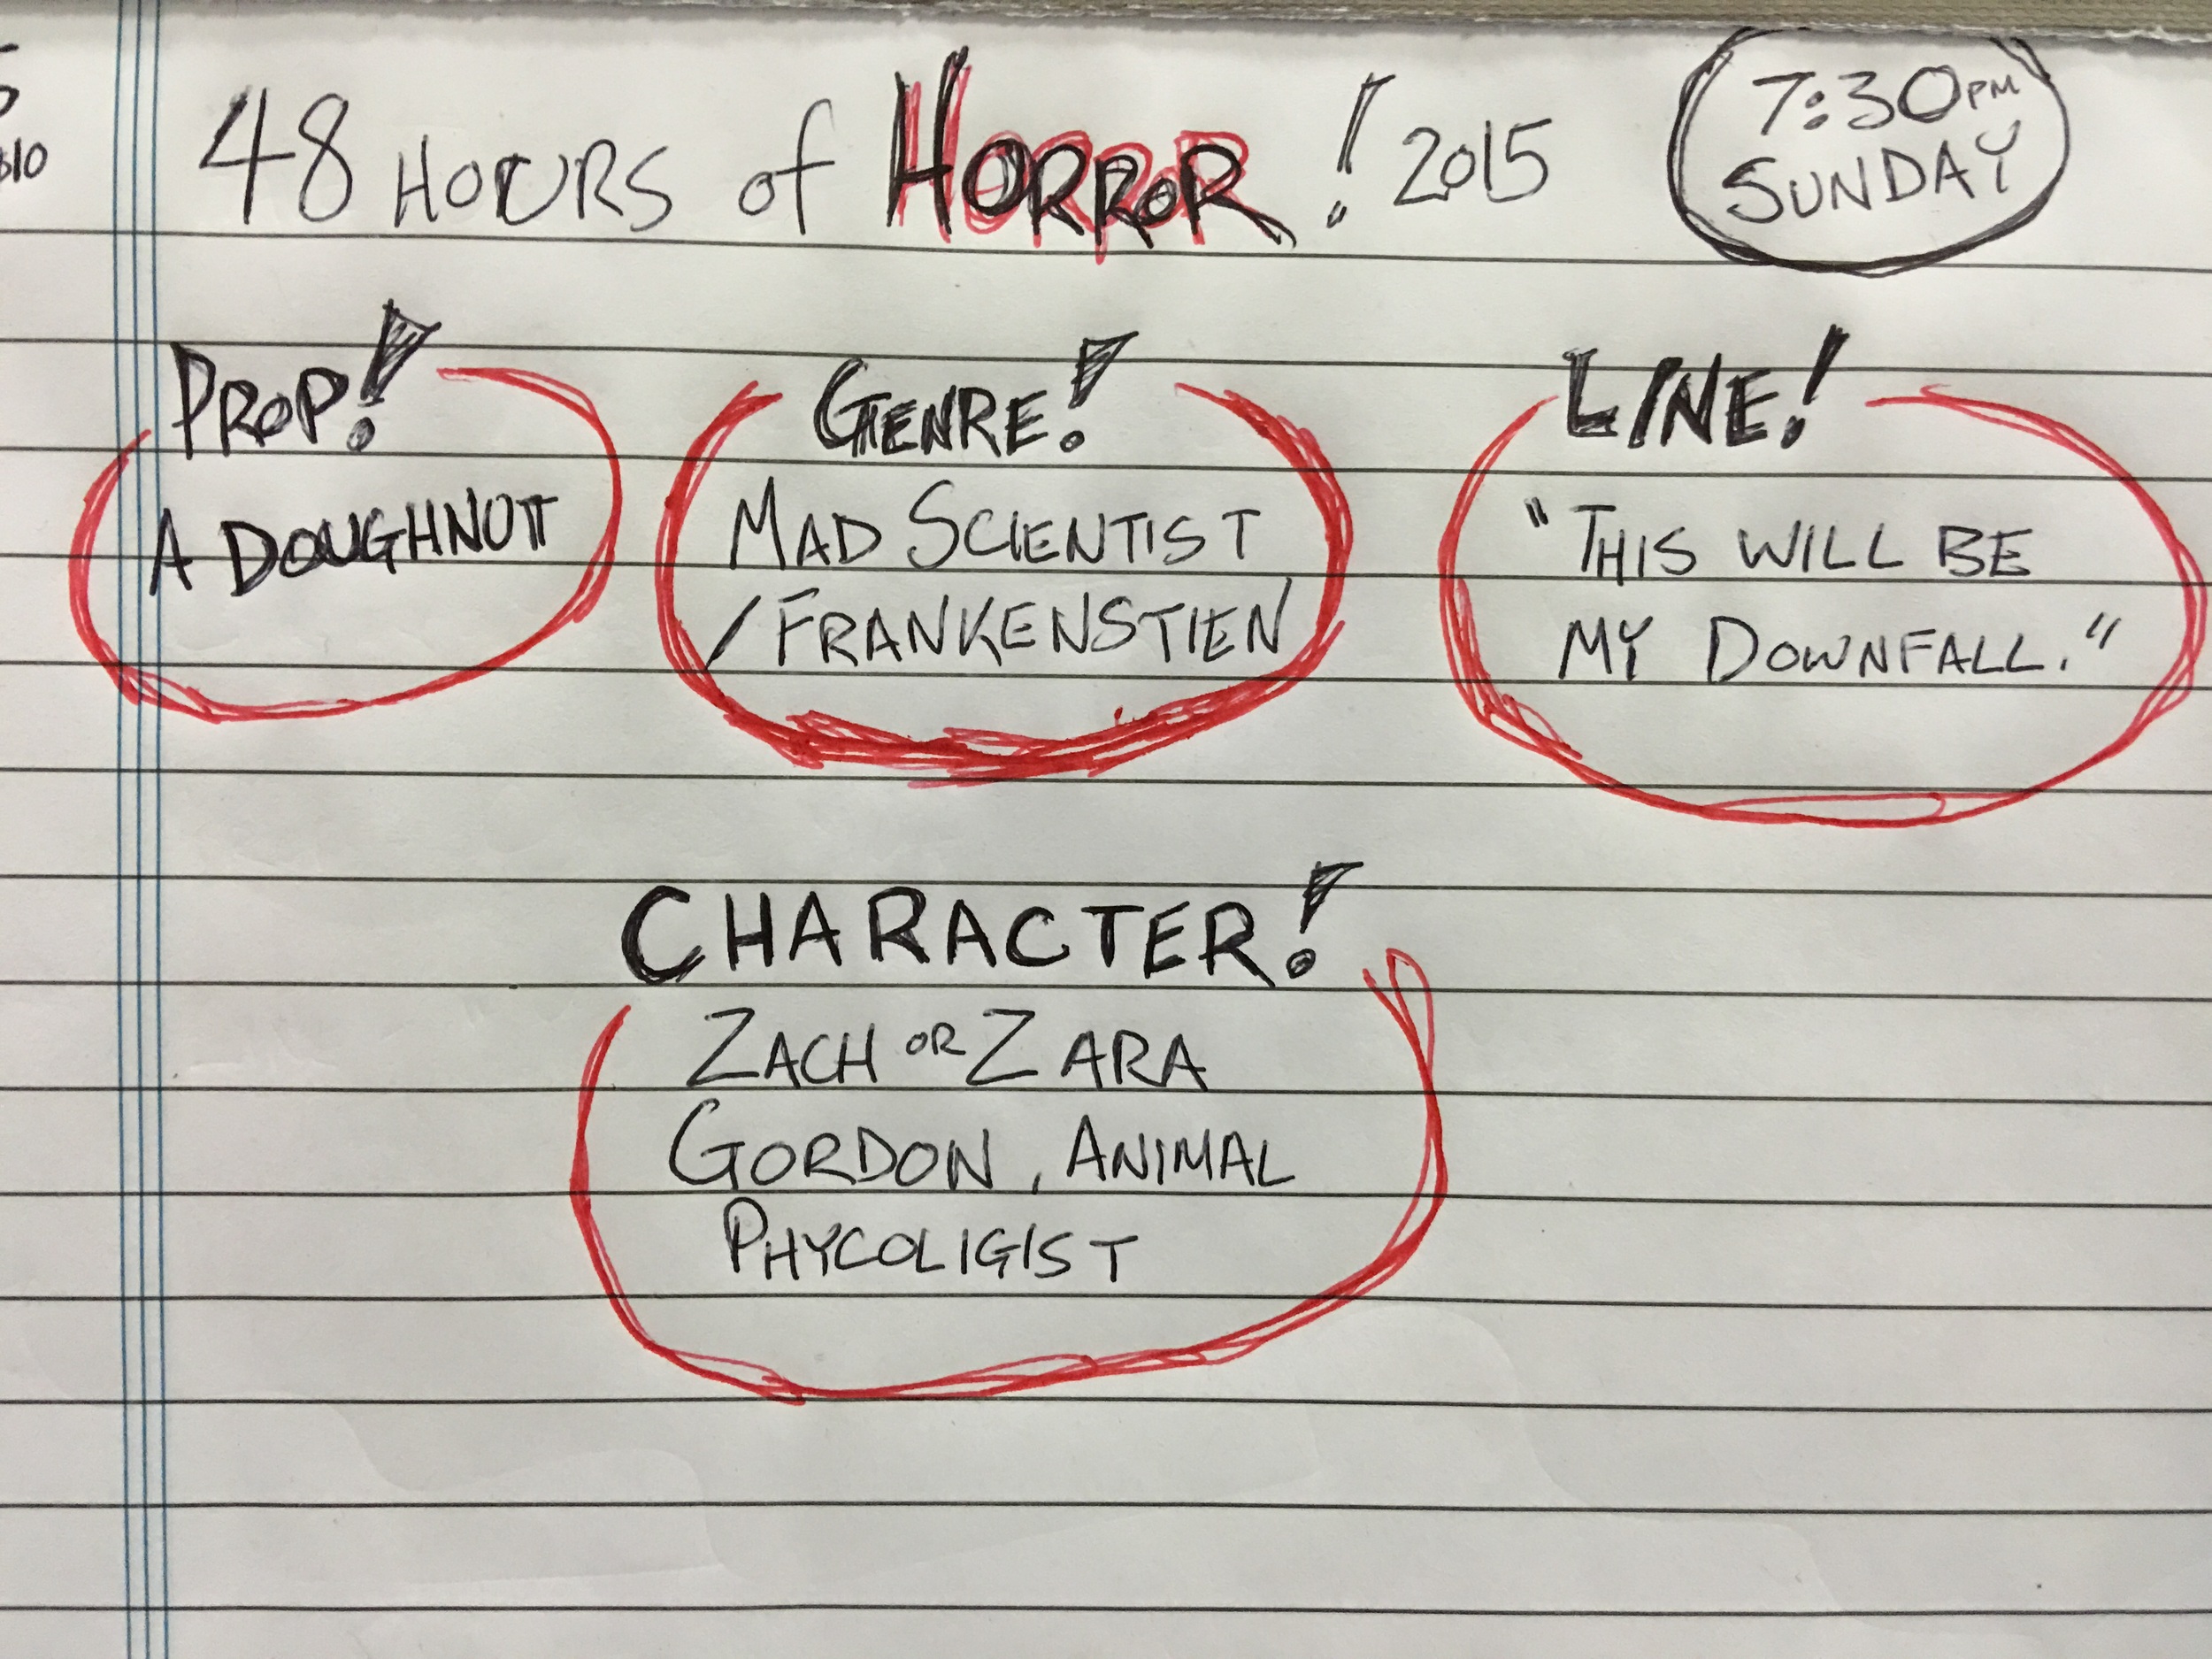 48 HOURS of HORROR! 2015
7:30PM
SUNDAY
PROP!
A DOUGHNUTT
GENRE!
MAD SCIENTIST
/FRANKENSTIEN
LINE!
"THIS WILL BE
MY DOWNFALL."
CHARACTER!
ZACH OR ZARA
GORDON, ANIMAL
PHYCOLIGIST